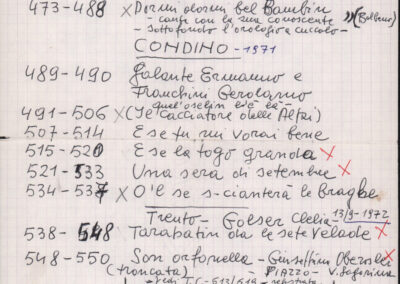 473-488 x Dormi dormi bel Bambin
- canta con la sua conoscente » (Bolbeno)
- sottofondo l'orologio a cuculo -
CONDINO - 1971
489-490 Galante Ermanno e
Franchini Gerolamo
quel'oselin
491-506 x (Je cacciatore delle Alpi)
507-514 E se tu mi vorai bene
515-520 E se la togo granda x
521-533 Una sera di setembre x
534-537 x O'l se s-cianterà le braghe
Trento - Goeser Clelia - 13/9-1972
538-548 Tarapatin da le sete velade x
548-550 Son orfanella - Giuseppina
(troncata) - PIAZZO - V. Lagarina